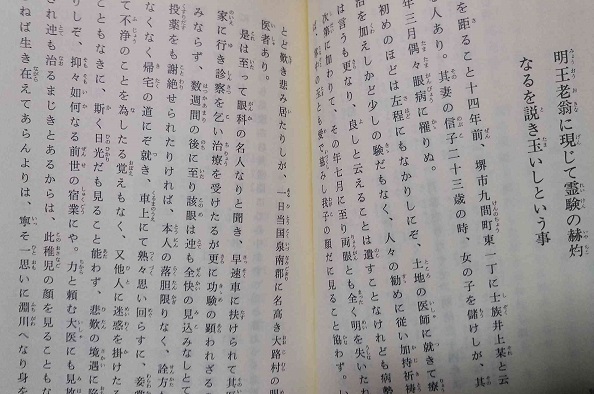 明王老翁に現じて霊験の赫灼
なるを説き玉いしという事
を距ること十四年前、堺市九間町東一丁に士族井上某と云
人あり。其妻の信子二十三歳の時、女の子を儲けしが、其
年三月偶々眼病に罹りぬ。
初めのほどは左程にもなかりしにぞ、土地の医師に就きて療
治を加えしかど少しの験だもなく、人々の勧めに従い加持祈祷
は言うも更なり、良しと云えることは遺すことなけれども病勢
次第に加わりて、その年七月に至り両眼とも全く明を失いたれ
の玉とも愛で慈みし我子の顔だに見ること協わず。い
とど歎き悲み居たりしが、一日当国泉南郡に名高き大路村の眼
医者あり。
是は至って眼科の名人なりと聞き、早速車に扶けられて其
家に行き診察を乞い治療を受けたるが更に功験の顕われざるの
みならず、数週間の後に至り該眼は迚も全快の見込みなしとて
投薬をも謝絶せられたりければ、本人の落胆限りなく、詮方
なくなく帰宅の道にぞ就き、車上にて熟々思い回らすに、妾
て不浄のことを為したる覚えもなく、又他人に迷惑を掛けたる
こともなきに、斯く日光だも見ること能わず、悲歎の境遇に陥
りしぞ、抑々如何なる前世の宿業にや。力と頼む大医にも見放
され迚も治るまじきとあるからは、此稚児の顔を見ることもな
ねば生き在えてあらんよりは、寧そ一思いに淵川へなり身を